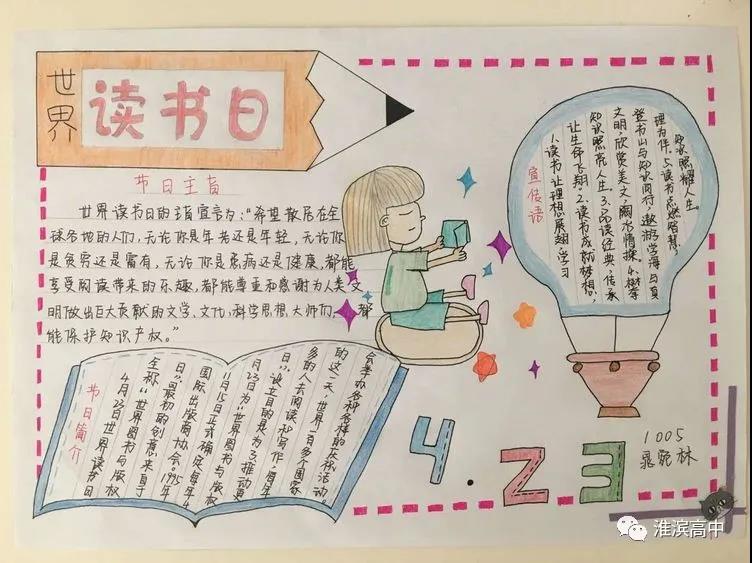 世界
读书日
节日主旨
世界读书日的主旨宣言为:“希望散居在全
球各地的人们,无论你是年老还是年轻,无论你
是贫穷还是富有,无论你是患病还是健康,都能
享受阅读带来的乐趣,都能尊重和感谢为人类文
明做出巨大贡献的文学、文化、科学思想大师们,都
能保护知识产权。”
宣传语
1.读书让理想展翅,学习
让生命飞翔。2.读书成就梦想,
知识照亮人生。3.品读经典,传承
文明,欣赏美文,陶冶情操。4.攀
登书山与知识同行,遨游学海与真
理为伴。5.读书点燃智慧,
知识照耀人生。
节日简介
4月23日世界读书日
全称“世界图书与版权
日”,最初的创意来自于
国际出版商协会。1995年
11月15日正式确定每年4
月23日为“世界图书与版权
日”,设立目的是为了推动更
多的人去阅读和写作,每年
的这一天,世界一百多个国家
会举办各种各样的庆祝活动。
4.23
1005
淮滨高中